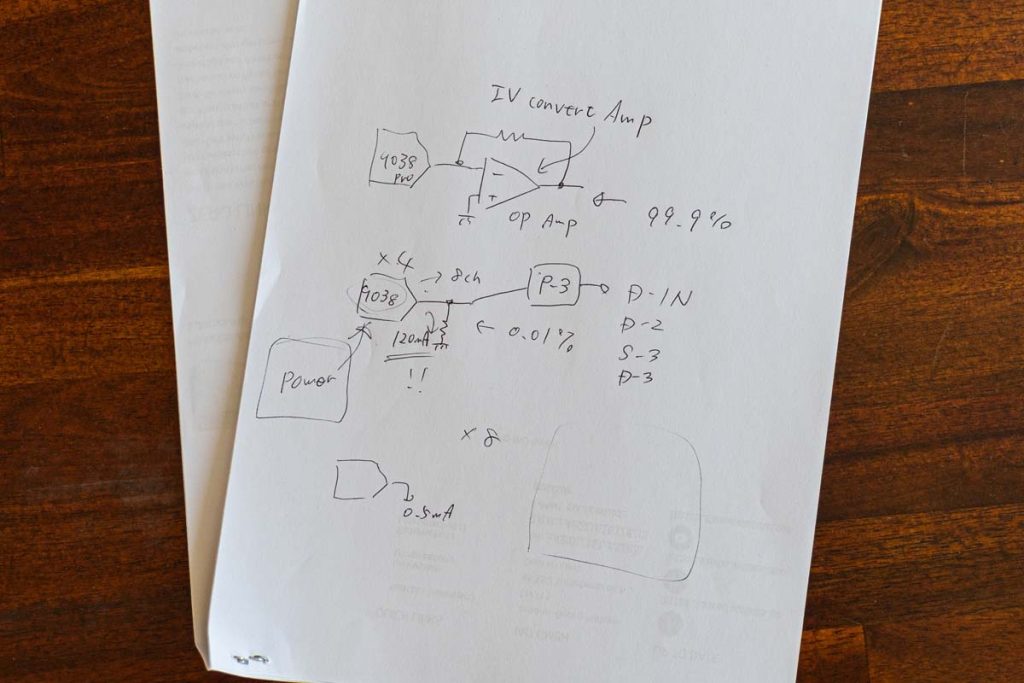 IV convert Amp
9038
pro
-
+
OP Amp
← 99.9%
×4
9038
→ 8ch
P-3
D-1N
D-2
S-3
D-3
120mA
!!
← 0.01%
Power
×8
0.5mA